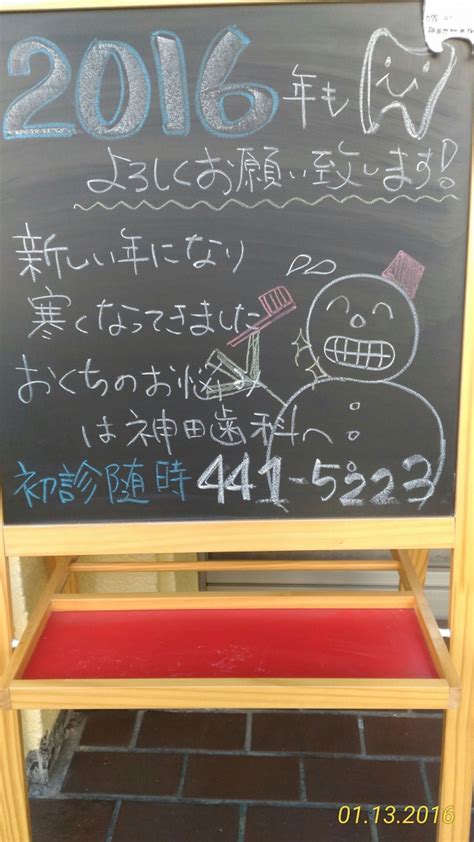 2016年も
よろしくお願い致します!
新しい年になり
寒くなってきました
おくちのお悩み
は神田歯科へ
初診随時 441-5223
01.13.2016